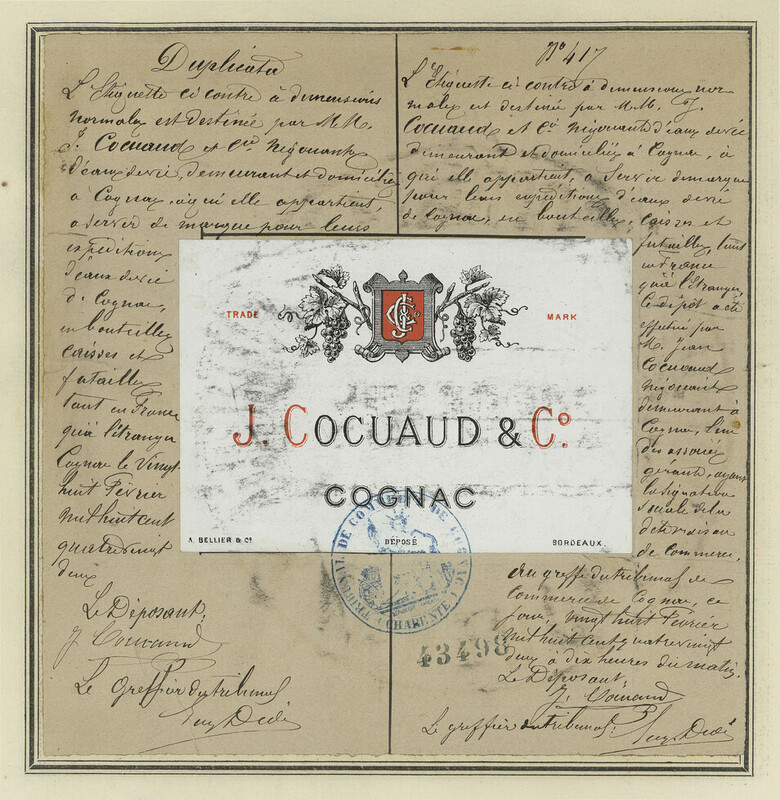 Duplicata
L'Etiquette ci contre à dimensions
normales est destinée par M.M.
J. Cocuaud et Cie Négociants
d'eaux de vie, demeurant et domiciliés
à Cognac, à qui elle appartient,
à servir de marque pour leurs
expéditions
d'eaux de vie
de Cognac,
en bouteilles
caisses et
futailles
tant en France
qu'à l'étranger
Cognac le Vingt
huit Février
mil huit cent
quatre vingt
deux
Le Déposant:
J Cocuaud
Le Greffier du tribunal
No 417
L'Etiquette ci contre à dimensions nor
males est destinée par M.M. J.
Cocuaud et Cie Négociants d'eaux de vie
demeurant et domiciliés à Cognac, à
qui elle appartient, à servir de marque
pour leurs expéditions d'eaux de vie
de Cognac, en bouteilles, caisses et
futailles, tant
en France
qu'à l'étranger,
Ce dépôt a été
effectué par
M. Jean
Cocuaud
Négociant
demeurant à
Cognac, l'un
des associés
gérants, ayant
la signature
sociale de la
dite maison
de Commerce.
Au greffe du tribunal de
Commerce de Cognac, ce
jour, vingt huit Février
mil huit cent quatre vingt
deux à dix heures du matin.
Le Déposant:
J. Cocuaud
Le greffier du tribunal:
TRADE MARK
J. COCUAUD & Co.
COGNAC
A. BELLIER & Co. DÉPOSÉ BORDEAUX.
TRIBUNAL DE COMMERCE DE COGNAC
(CHARENTE)
43498